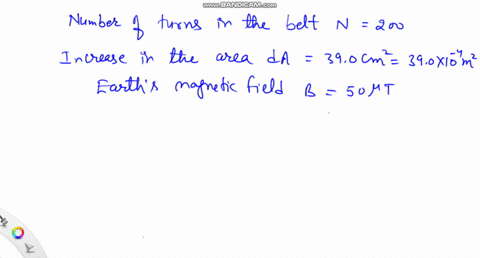 WWW.BANDICAM.COM
Number of turns in the belt N = 200
Increase in the area dA = 39.0 cm² = 39.0 × 10⁻⁴ m²
Earth's magnetic field B = 50 μT